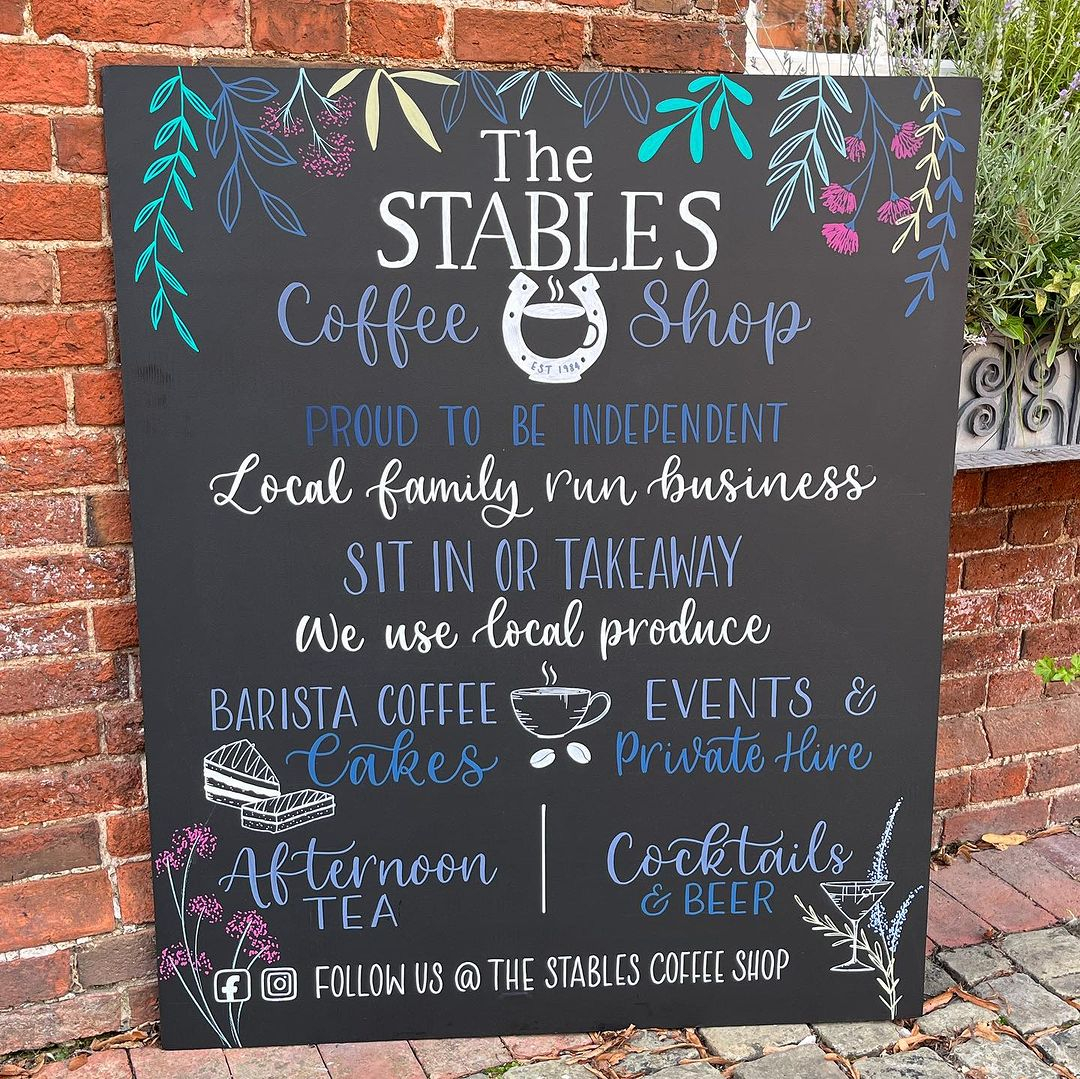 The
STABLES
Coffee Shop
EST 1984
PROUD TO BE INDEPENDENT
Local family run business
SIT IN OR TAKEAWAY
We use local produce
BARISTA COFFEE
Cakes
EVENTS &
Private Hire
Afternoon
TEA
Cocktails
& BEER
f FOLLOW US @ THE STABLES COFFEE SHOP